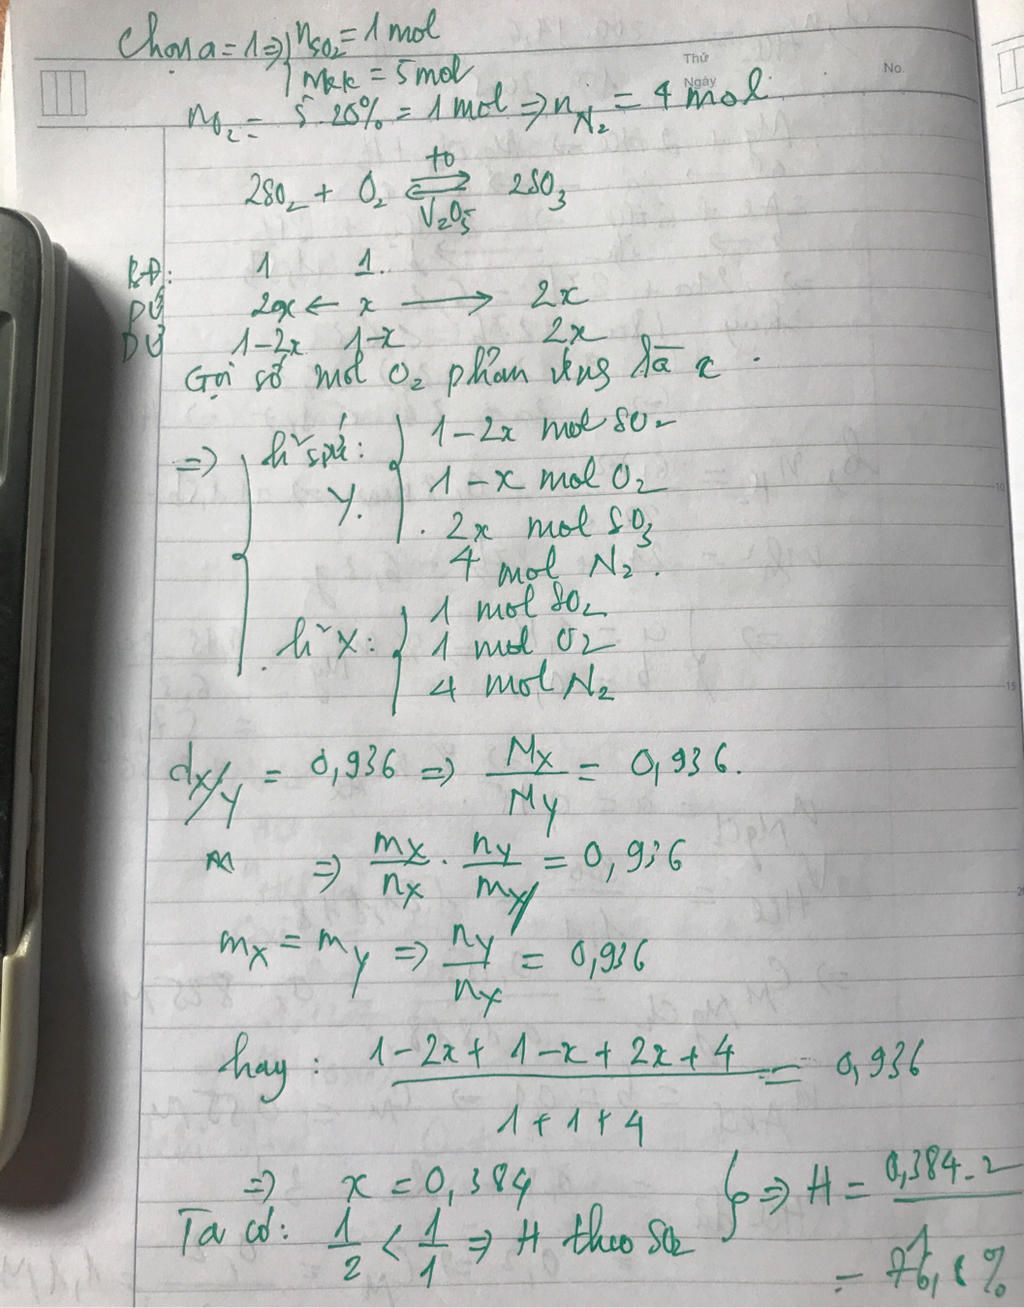 Chọn a = 1 => { nSO2 = 1 mol
nkk = 5 mol
Thứ
Ngày
No.
nO2 = 5.20% = 1 mol => nN2 = 4 mol
2SO2 + O2 ⇌ 2SO3
to
V2O5
BĐ: 1 1
PƯ 2x ← x → 2x
DƯ 1-2x 1-x 2x
Gọi số mol O2 phản ứng là x.
=> { h² spứ: { 1-2x mol SO2
Y. 1-x mol O2
2x mol SO3
4 mol N2.
10
h² X: { 1 mol SO2
1 mol O2
4 mol N2
15
dX/Y = 0,936 => MX/MY = 0,936.
=> mX/nX . nY/mY = 0,936
mX = mY => nY/nX = 0,936
hay: (1-2x + 1-x + 2x + 4)/(1 + 1 + 4) = 0,936
=> x = 0,384
Ta có: 1/2 < 1/1 => H theo SO2
=> H = 0,384.2/1
= 76,8%